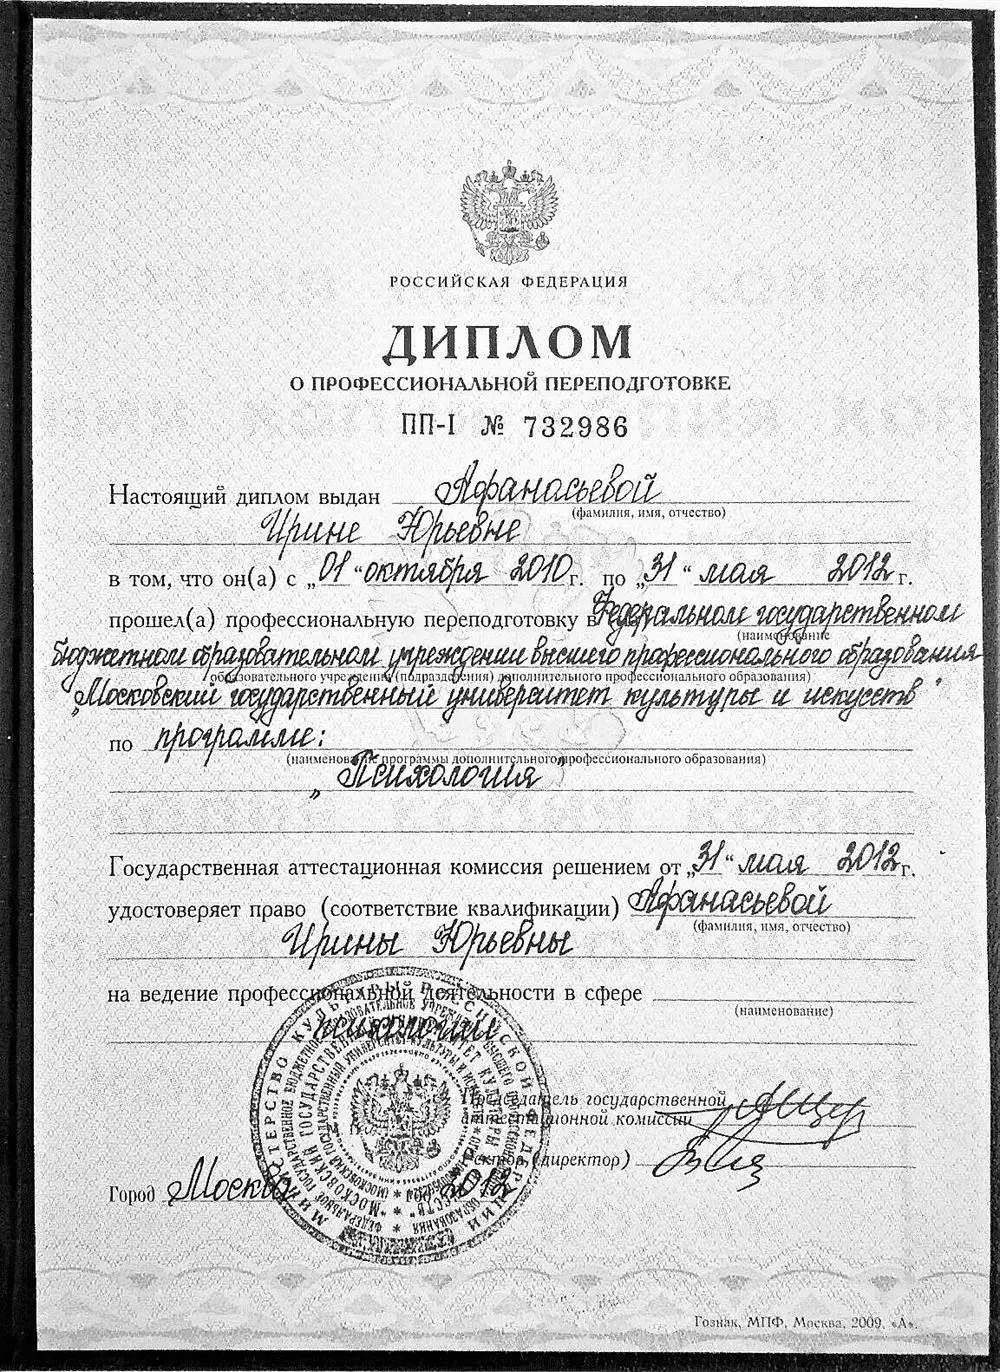 РОССИЙСКАЯ ФЕДЕРАЦИЯ
ДИПЛОМ
О ПРОФЕССИОНАЛЬНОЙ ПЕРЕПОДГОТОВКЕ
ПП-I № 732986
Настоящий диплом выдан Афанасьевой
(фамилия, имя, отчество)
Ирине Юрьевне
в том, что он(а) с „01“ октября 2010г. по „31“ мая 2012г.
прошел(а) профессиональную переподготовку в Федеральном государственном
(наименование
бюджетном образовательном учреждении высшего профессионального образования
образовательного учреждения (подразделения) дополнительного профессионального образования)
„Московский государственный университет культуры и искусств“
по программе:
(наименование программы дополнительного профессионального образования)
„Психология“
Государственная аттестационная комиссия решением от „31“ мая 2012г.
удостоверяет право (соответствие квалификации) Афанасьевой
(фамилия, имя, отчество)
Ирины Юрьевны
на ведение профессиональной деятельности в сфере
(наименование)
психологии
Председатель государственной
аттестационной комиссии
Ректор (директор)
Город Москва год 2012
МИНИСТЕРСТВО КУЛЬТУРЫ РОССИЙСКОЙ ФЕДЕРАЦИИ
Гознак, МПФ, Москва, 2009, «А».